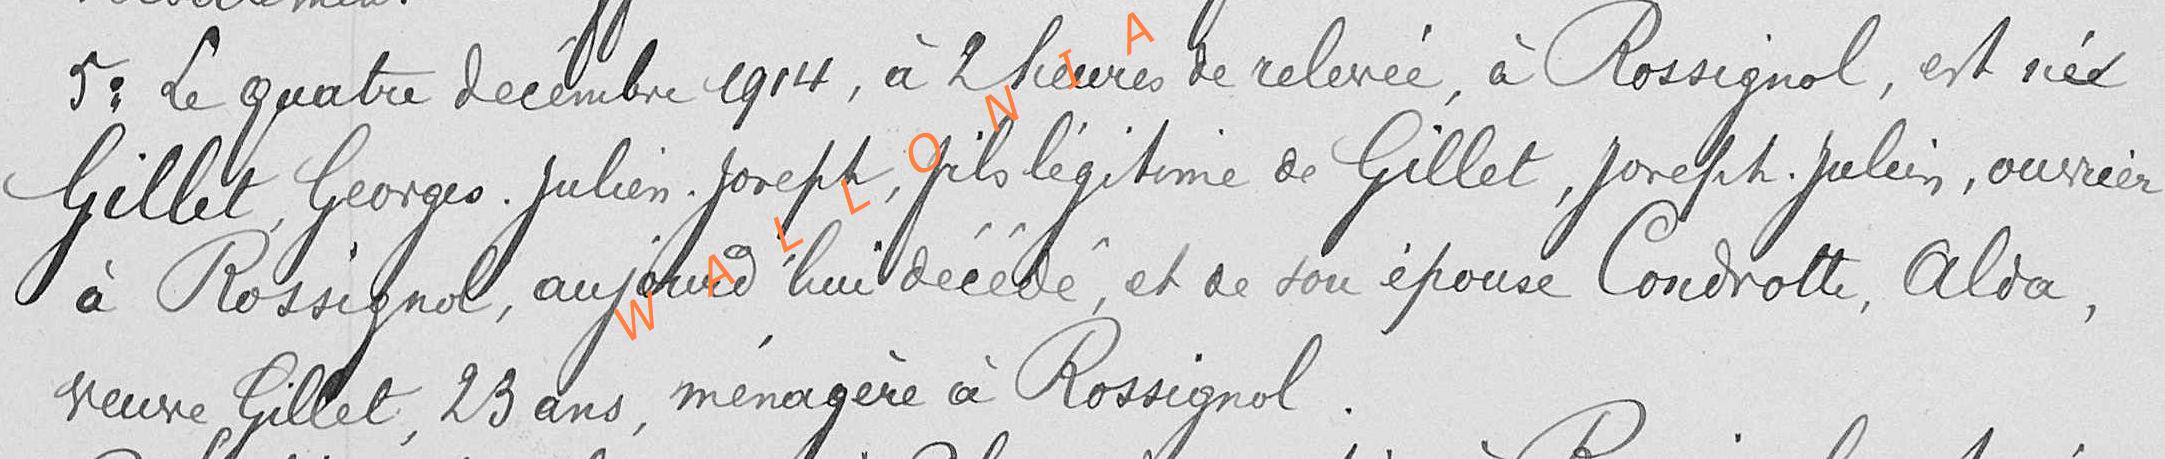 5: Le quatre décembre 1914, à 2 heures de relevée, à Rossignol, est né
Gillet, Georges. Julien. Joseph, fils légitime de Gillet, Joseph. Julien, ouvrier
à Rossignol, aujourd'hui décédé, et de son épouse Condrotte, Alda,
veuve Gillet, 23 ans, ménagère à Rossignol.
WALLONIA